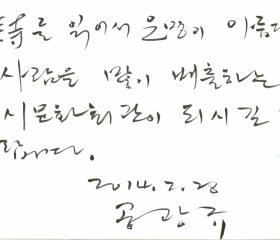 詩를 읽어서 운명이 아름다
사람을 많이 배출하는
시문화회관이 되시길
랍니다.
2014. 2. 28
공광규